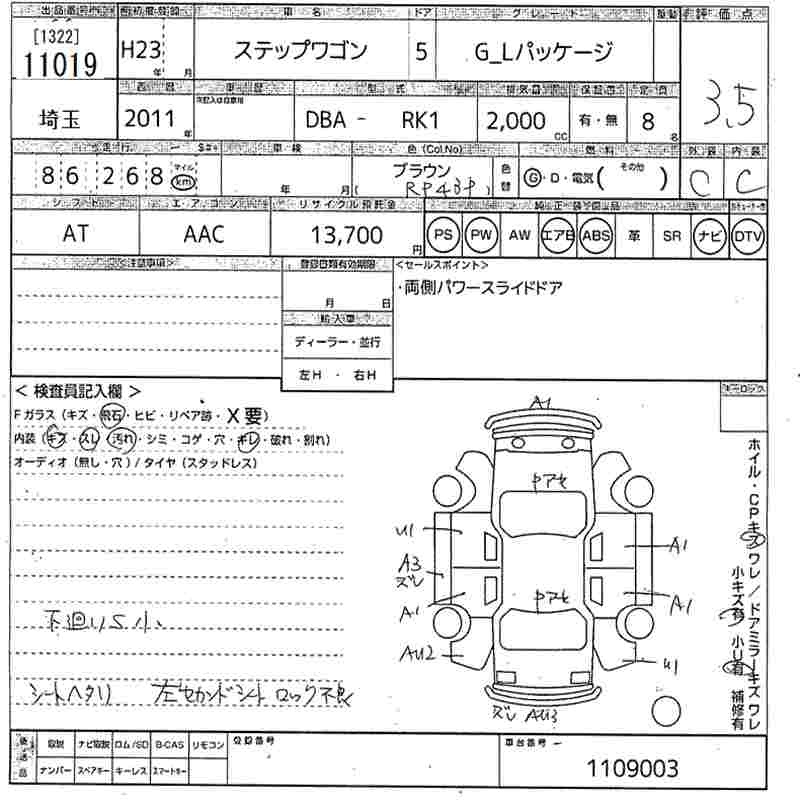 出品番号 初度登録 車名 ドア グレード 駆動 評価点
[1322]
11019 H23 年 月 ステップワゴン 5 G_Lパッケージ
3.5
西暦 車歴 型式 排気量 保証書 定員
埼玉 2011 年 DBA - RK1 2,000 CC 有・無 8 名
走行 車検 色 (Col.No) 燃料 その他 外装 内装
86,268 マイル km 年 月 ブラウン 色替 G・D・電気( ) C C
シフト エアコン リサイクル預託金 純正装備品
AT AAC 13,700 円 PS PW AW エアB ABS 革 SR ナビ DTV
注意事項 登録書類有効期限 <セールスポイント>
月 日 ・両側パワースライドドア
輸入車
ディーラー・並行
左H ・ 右H
キーロック
< 検査員記入欄 >
Fガラス (キズ・飛石・ヒビ・リペア跡・X要)
内装 (キズ・スレ・汚れ・シミ・コゲ・穴・キレ・破れ・割れ)
オーディオ (無し・穴) / タイヤ (スタッドレス)
A1
中アセ
U1 A1
A3
ズレ
中アセ
A1 A1
AU2 U1
ズレ AU3
下廻りS小
シートヘタリ 左セカンドシート ロック不良
ホイル・CPキズワレ/ドアミラーキズワレ
小キズ有 小U有 補修有
後送品 取説 ナビ取説 ロム/SD B-CAS リモコン 登録番号 車台番号
ナンバー スペアキー キーレス スマートキー 1109003